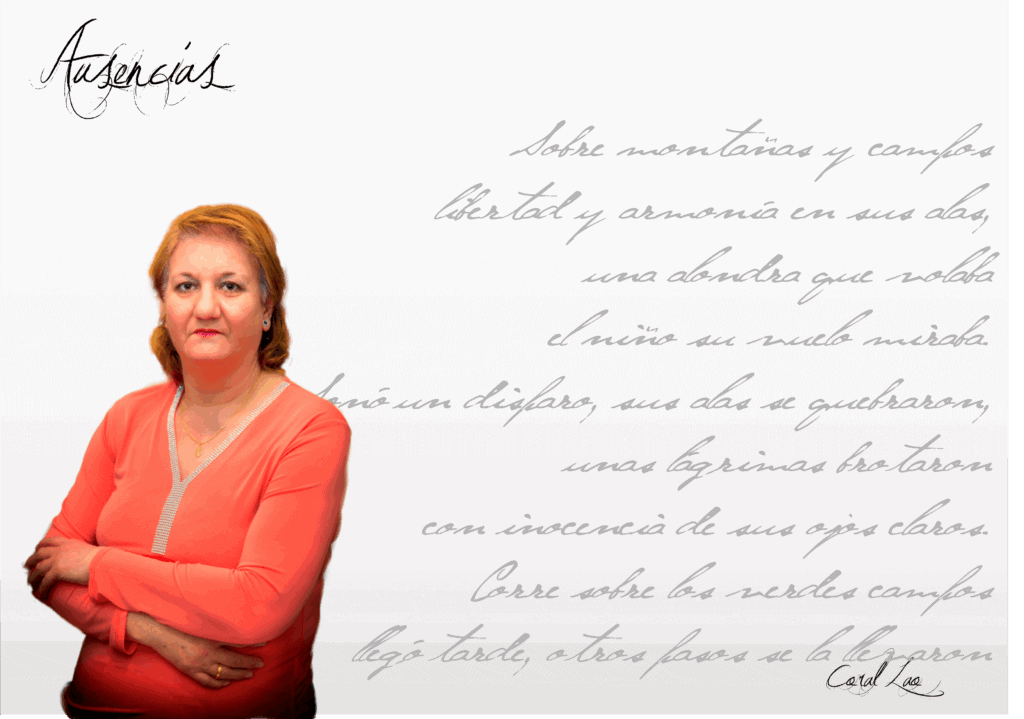 Ausencias
Sobre montañas y campos
libertad y armonía en sus alas,
una alondra que volaba
el niño su vuelo miraba.
Sonó un disparo, sus alas se quebraron,
unas lágrimas brotaron
con inocencia de sus ojos claros.
Corre sobre los verdes campos
llegó tarde, otros pasos se la llevaron
Coral Lao